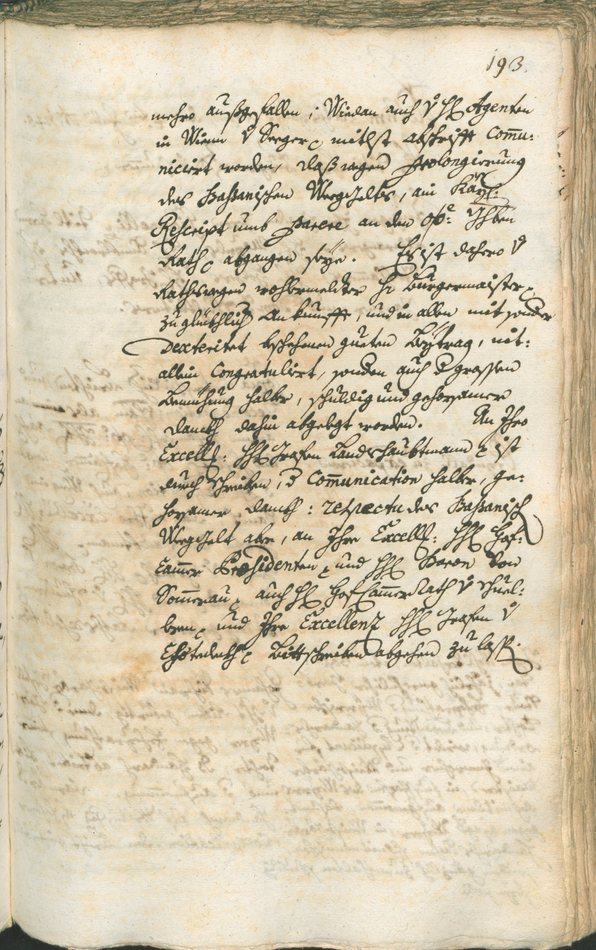 193.
mehro außgefallen; Wiedan auch v. H. Agenten
in Wienn v. Seeger mitlst abschrifft Comu-
niciert worden, daß wegen prolongierung
des Baßanischen Weggelts, ain Kayl:
Rescript umb parere an den
Rath abgangen seye. Es ist dahero
Rathswegen wohlermelter Hr Burgermaister
zu glücklich Ankunfft, und in allen mit sonder
Dexteritet beschehenen gueten Beytrag, nit-
allein Congratuliert, sonder auch d. grossen
Bemühung halber, schuldig und gehorsamer
danckh dahin abgelegt worden. An Ihro
Excell: H. Grafen Landshaubtmann ist
durch schreiben, d. Communication halber, ge-
horsamer danckh: respectu des Baßanisch
Weggelt aber, an Ihre Excell: H. Hof-
Camer Præsidenten, und H. Baron von
Sommerau, auch H. HofCammerRath v.
und Ihre Excellenz H. Grafen v.
Bittschreiben abgehen zu lass.